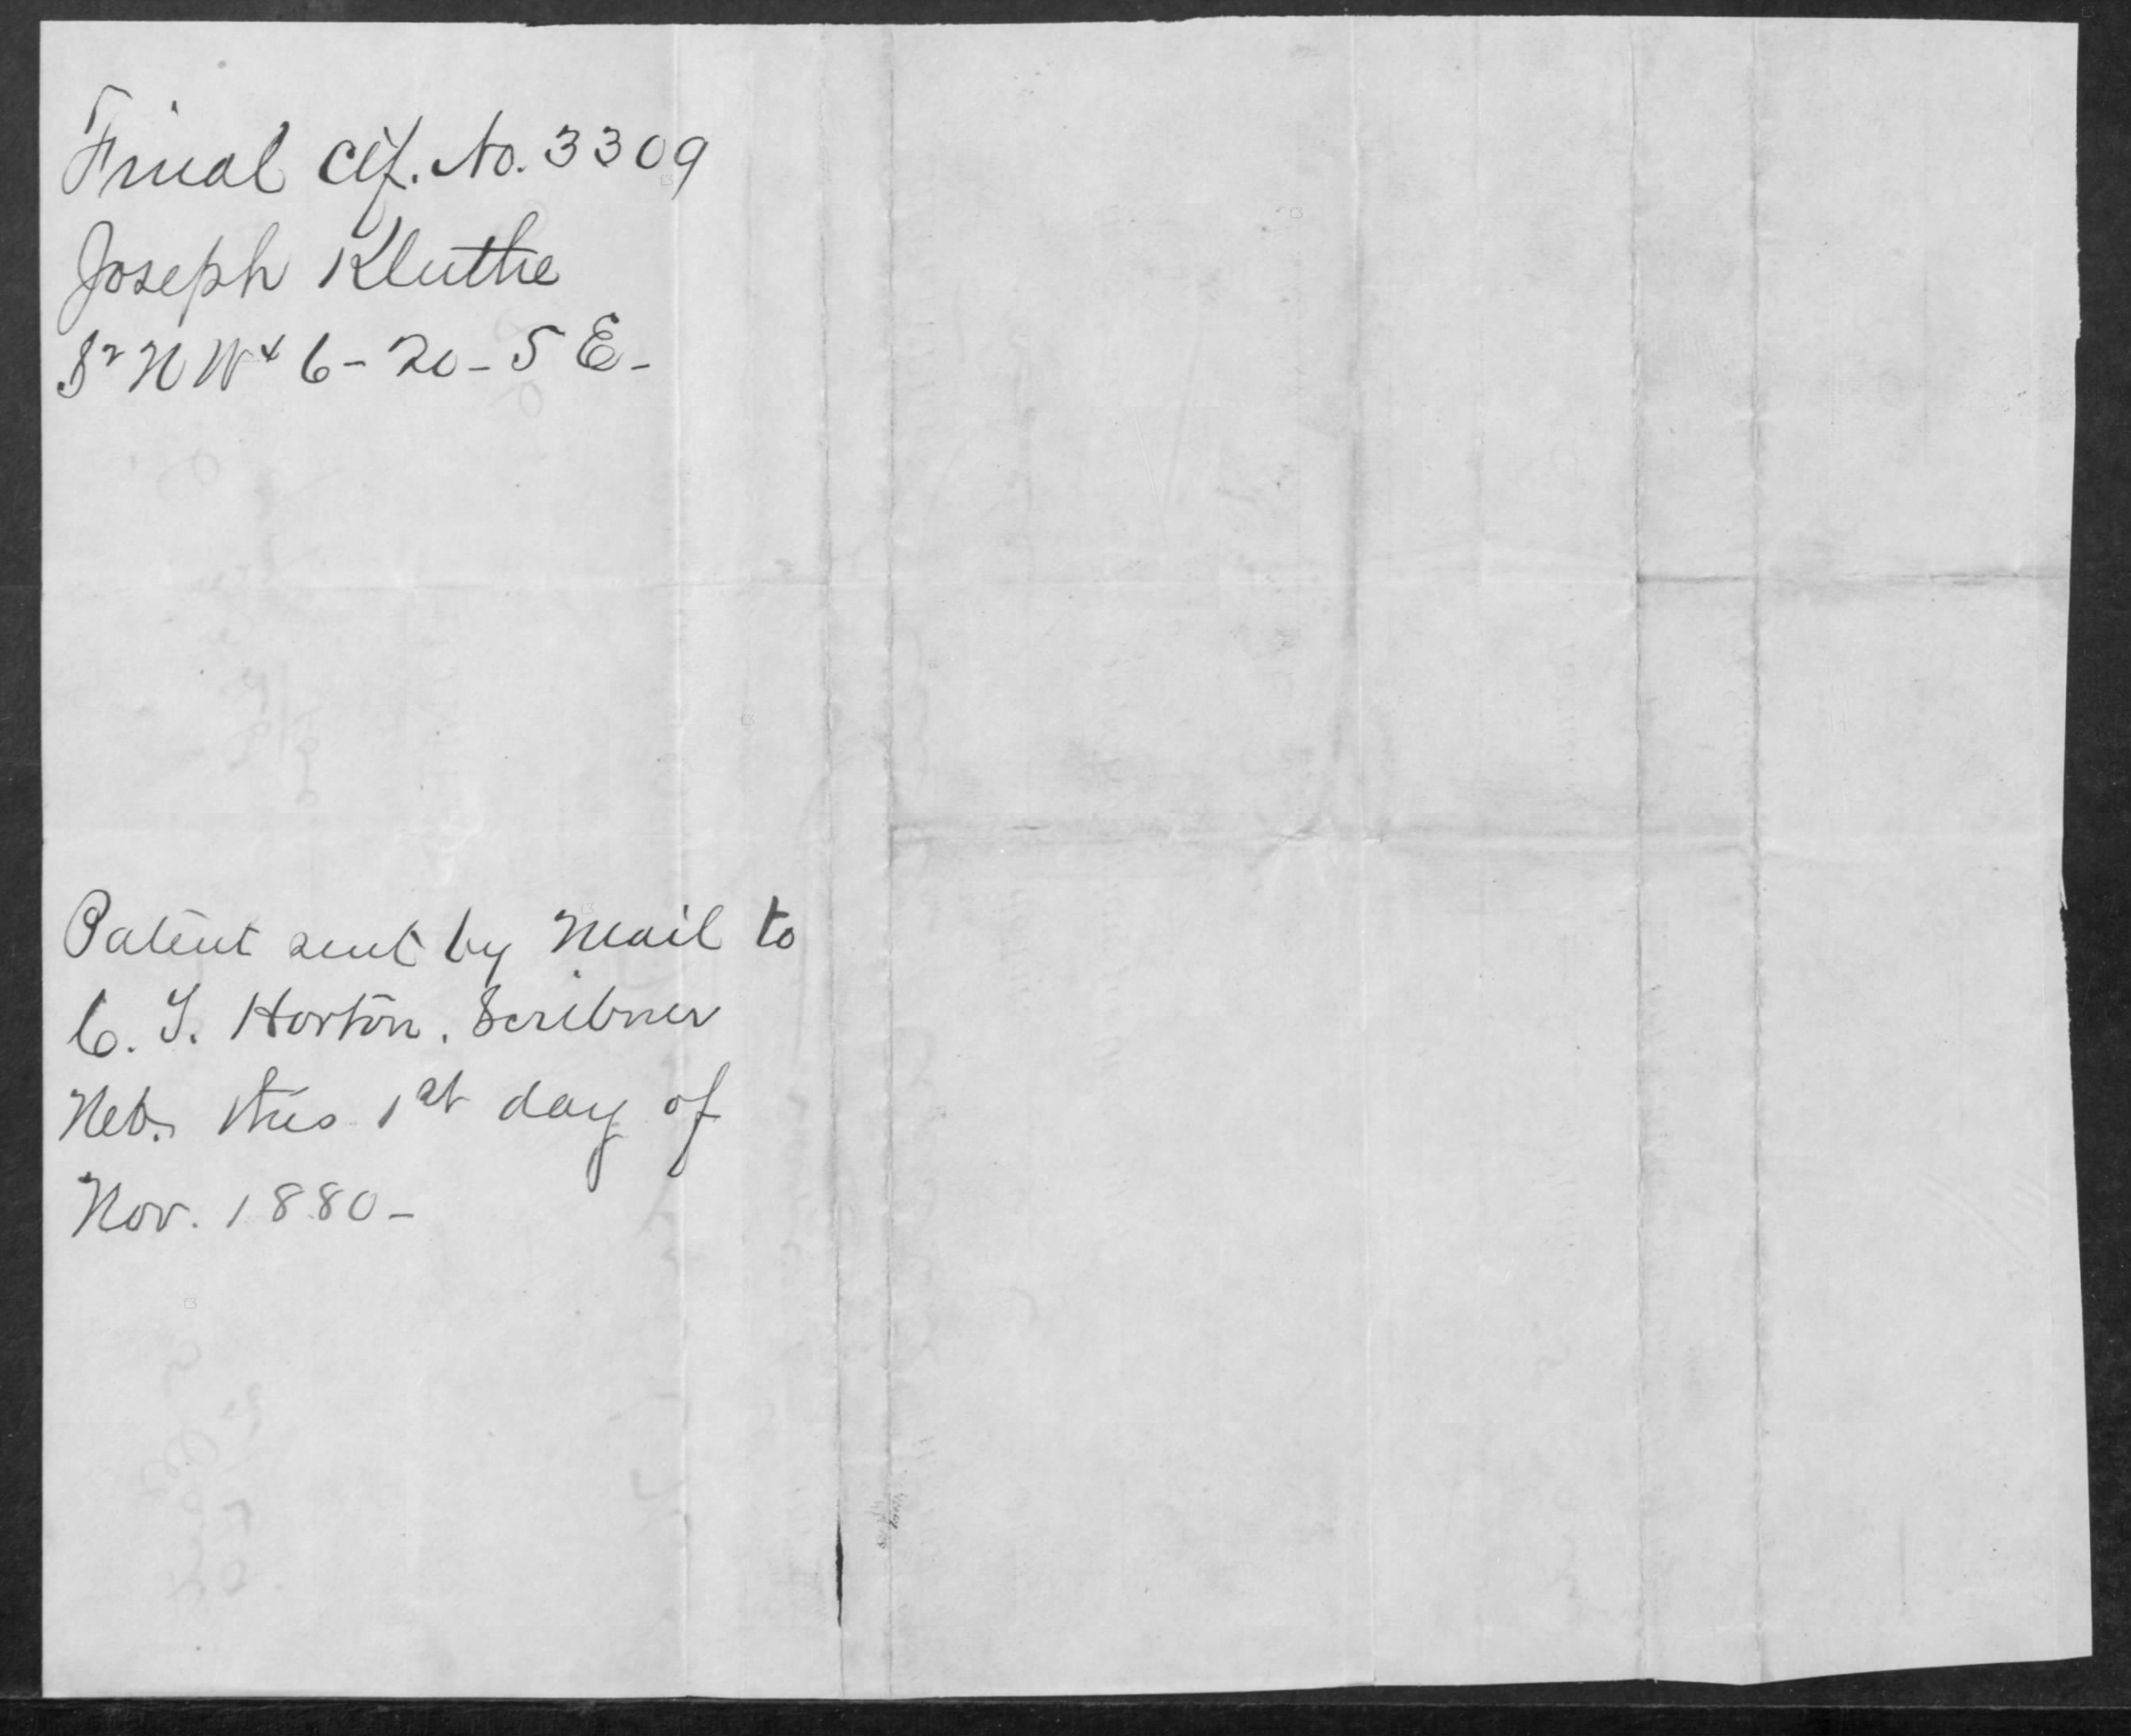 Final Ctf. No. 3309
Joseph Kluthe
S² NW⁴ 6-20-5 E-
Patent sent by Mail to
C. T. Horton. Scribner
Neb. this 1st day of
Nov. 1880-